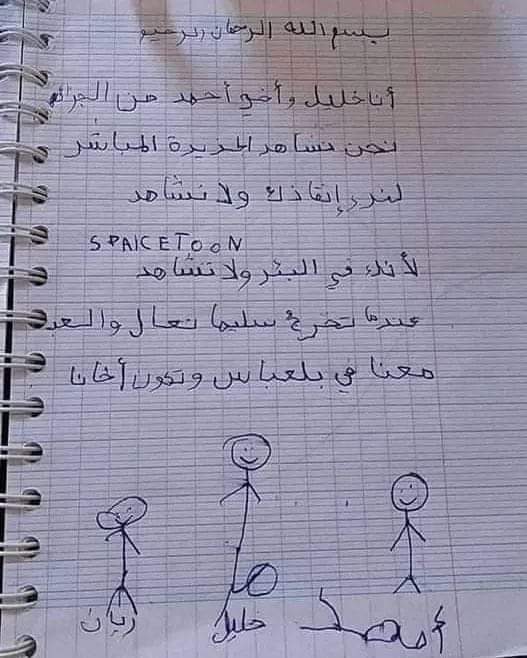 بسم الله الرحمان الرحيم
أنا خليل وأخي أحمد من الجزائر
نحن نشاهد الجزيرة المباشر
لنرى إنقاذك ولا نشاهد
SPAICETOON
لأنك في البئر ولا تشاهد
عندما تخرج سليما تعال والعب
معنا في بلعباس وتكون أخانا
ريان خليل أحمد